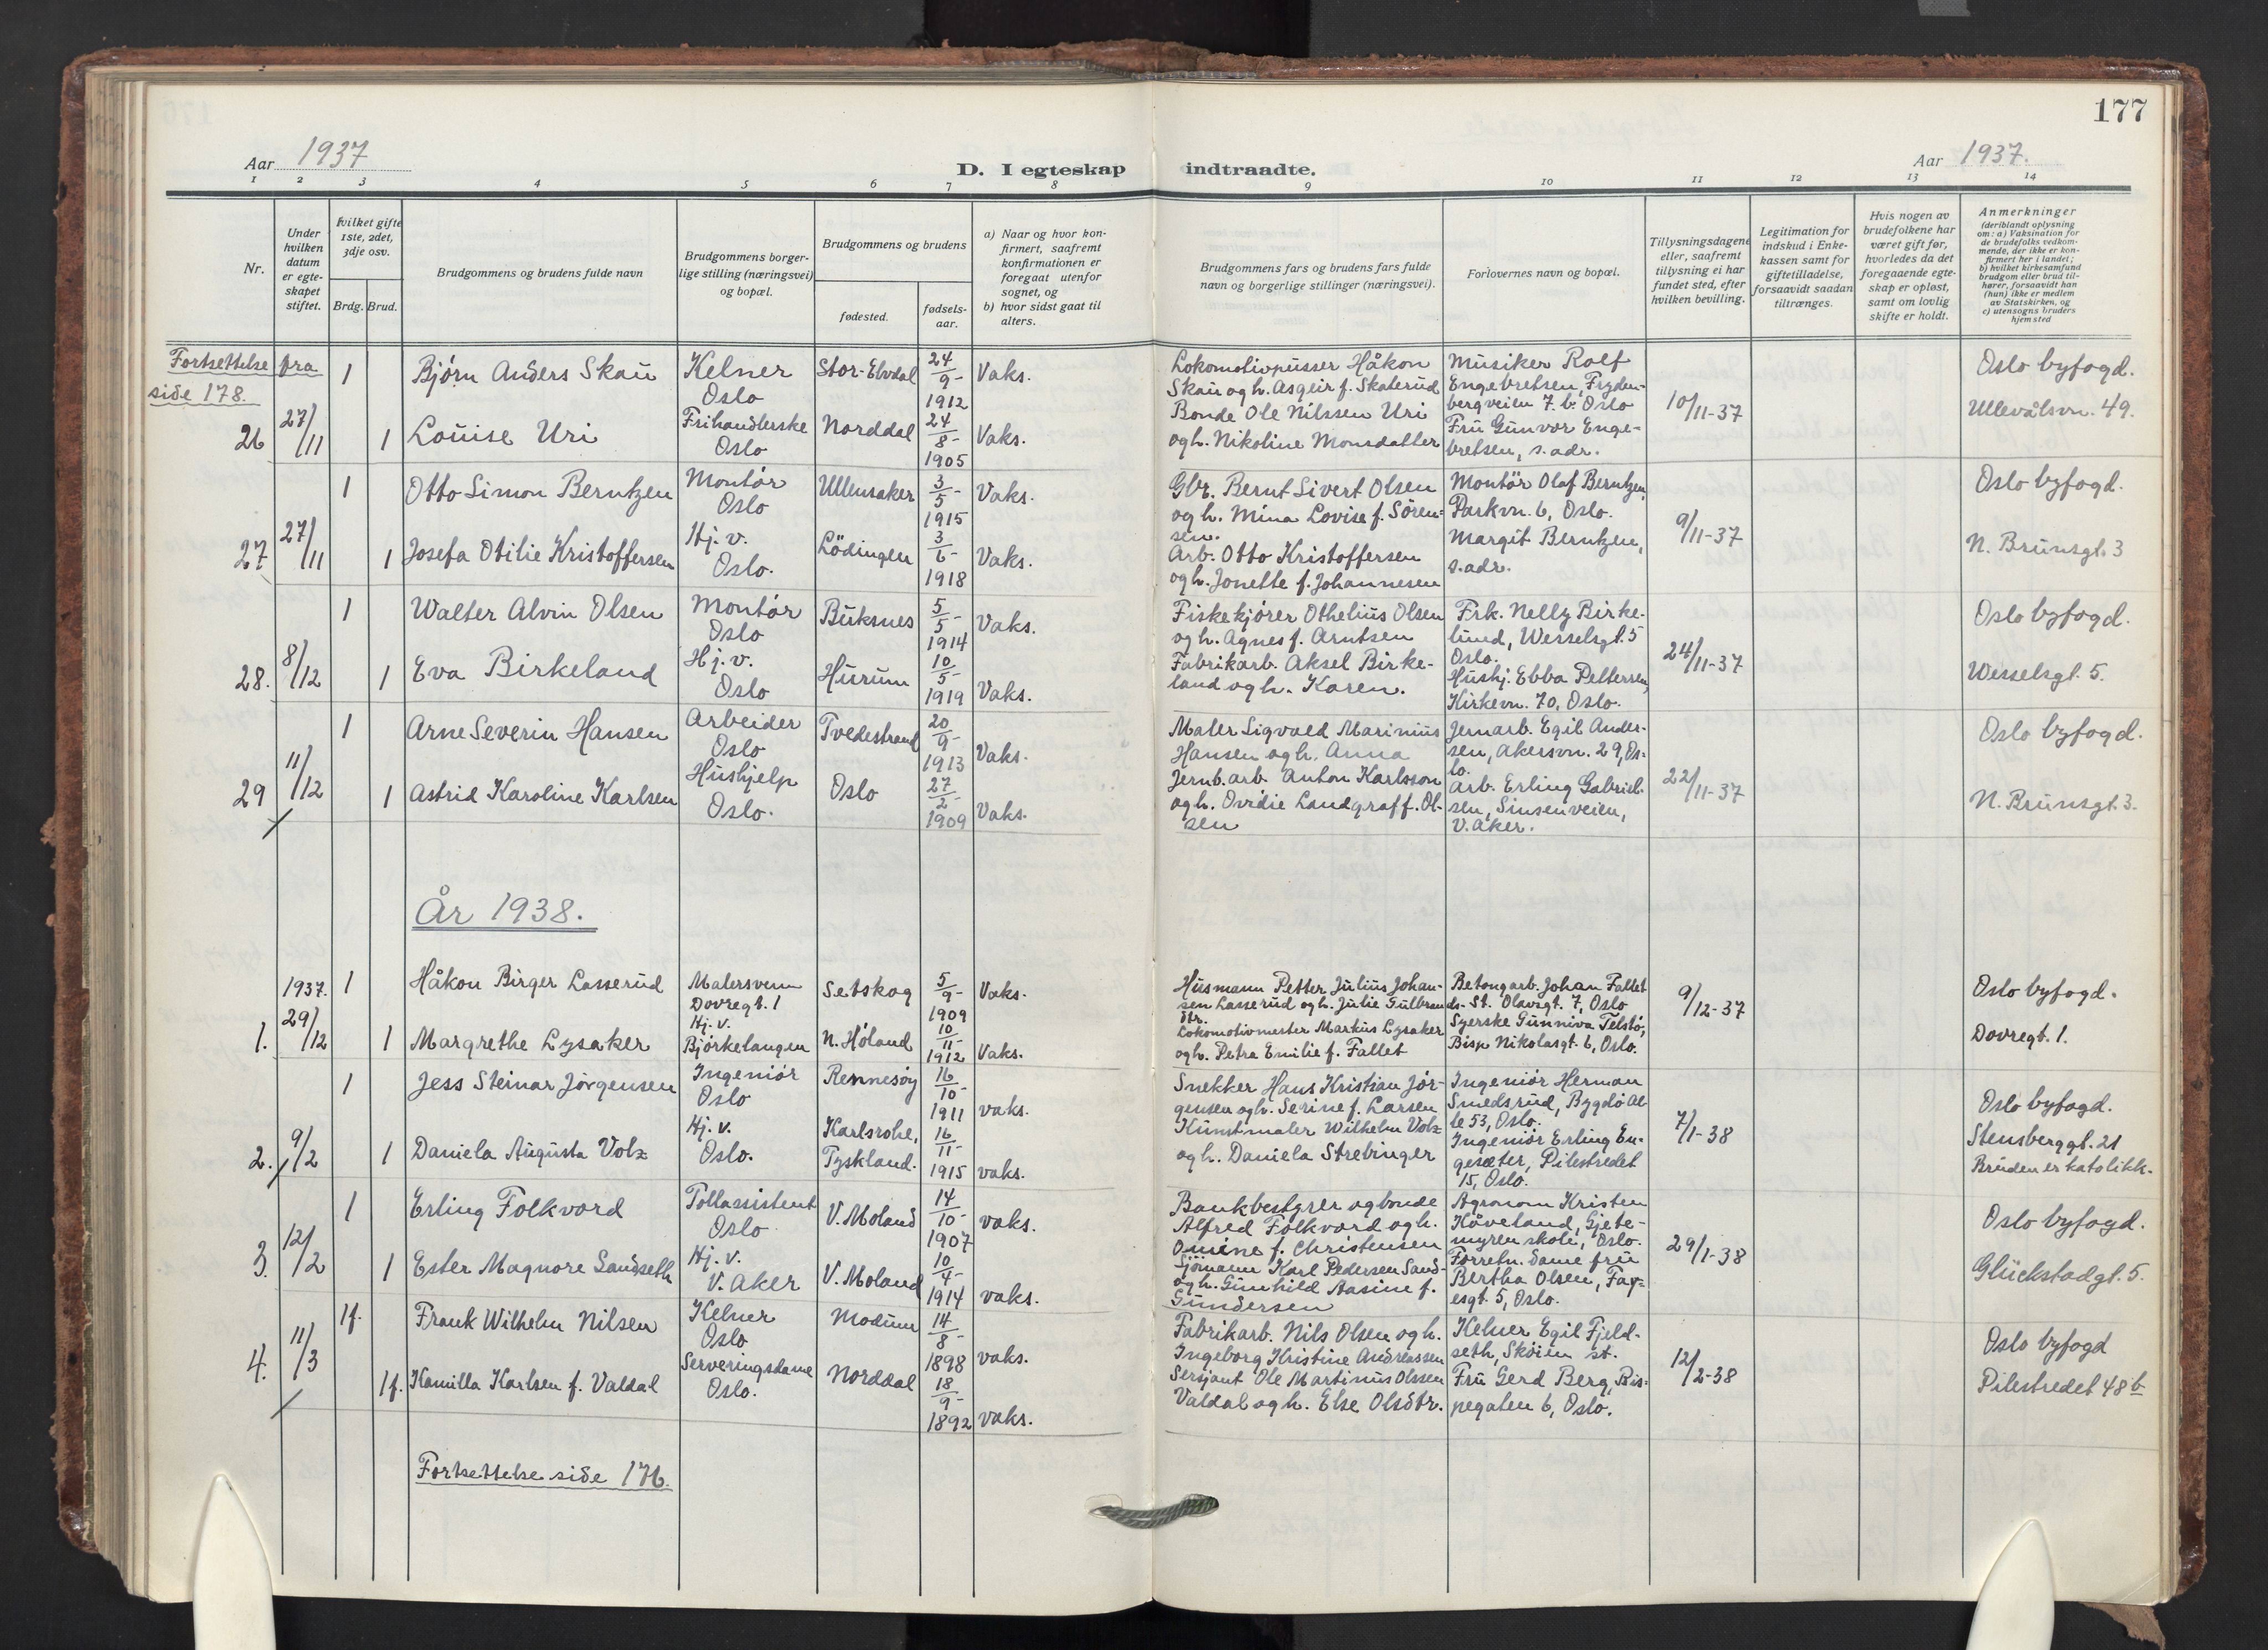 177
Aar 1937
D. I egteskap indtraadte.
Aar 1937.
1 2 3 4 5 6 7 8 9 10 11 12 13 14
Nr.
Under hvilken datum er egte-skapet stiftet.
Hvilket gifte 1ste, 2det, 3dje osv.
Brdg. Brud.
Brudgommens og brudens fulde navn
Brudgommens borger-lige stilling (næringsvei) og bopæl.
Brudgommens og brudens
fødested.
fødsels-aar.
a) Naar og hvor kon-firmert, saafremt konfirmationen er foregaat utenfor sognet, og
b) hvor sidst gaat til alters.
Brudgommens fars og brudens fars fulde navn og borgerlige stillinger (næringsvei).
Forlovernes navn og bopæl.
Tillysningsdagene eller, saafremt tillysning ei har fundet sted, efter hvilken bevilling.
Legitimation for indskud i Enke-kassen samt for giftetilladelse, forsaavidt saadan tiltrænges.
Hvis nogen av brudefolkene har været gift før, hvorledes da det foregaaende egte-skap er opløst, samt om lovlig skifte er holdt.
Anmerkninger
(deriblandt oplysning om: a) Vaksination for de brudefolks vedkom-mende, der ikke er kon-firmert her i landet; b) hvilket kirkesamfund brudgom eller brud til-hører, forsaavidt han (hun) ikke er medlem av Statskirken, og c) utensogns bruders hjemsted
Fortsettelse fra
side 178.
1 Bjørn Anders Skau Kelner Oslo Stor-Elvdal 24/9- 1912 Vaks.
Lokomotivpusser Håkon
Skau og h. Asgeir f. Skaterud
Musiker Rolf
Engebretsen, Fryden-
bergveien 7. b. Oslo
10/11-37
Oslo byfogd.
26 27/11 1 Louise Uri Frihandlerske Oslo Norddal 24/8- 1905 Vaks.
Bonde Ole Nilssen Uri
og h. Nikoline Monsdatter
Fru Gunvor Enge-
bretsen, s. adr.
Ullevålsvn. 49.
1 Otto Simon Berntzen Montør Oslo Ullensaker 3/5- 1915 Vaks.
Gbr. Bernt Sivert Olsen
og h. Mina Lovise f. Sören-
sen.
Montör Olaf Berntzen,
Parkvn. 6, Oslo.
9/11-37
Oslo byfogd.
27 27/11 1 Josefa Otilie Kristoffersen Hj. v. Oslo. Lödingen 3/6- 1918 Vaks.
Arb. Otto Kristoffersen
og h. Jonette f. Johannesen
Margit Berntzen,
s. adr.
N. Brunsgt. 3
1 Walter Alvin Olsen Montør Oslo Buksnes 5/5- 1914 Vaks.
Fiskekjører Othelius Olsen
og h. Agnes f. Arntsen
Frk. Nelly Birke-
lund, Wesselsgt. 5
Oslo.
24/11-37
Oslo byfogd.
28. 8/12 1 Eva Birkeland Hj. v. Oslo Hurum 10/5- 1919 Vaks.
Fabrikarb. Aksel Birke-
land og h. Karen.
Hushj. Ebba Pettersen,
Kirkevn. 70, Oslo.
Wesselsgt. 5.
1 Arne Severin Hansen Arbeider Oslo Tvedestrand 20/9- 1913 Vaks.
Maler Sigvald Marinius
Hansen og h. Anna
Jernarb. Egil Ander-
sen, Akersvn. 29, Os-
lo.
22/11-37
Oslo byfogd.
29 11/12 1 Astrid Karoline Karlsen Hushjelp Oslo. Oslo 27/2- 1909 Vaks.
Jernb. arb. Anton Karlsson
og h. Ovidie Landgraff f. Ol-
sen
Arb. Erling Gabriel-
sen, Sinsenveien,
V. Aker.
N. Brunsgt. 3.
År 1938.
1937. 1 Håkon Birger Lasserud Malersvenn Dovregt. 1 Setskog 5/9- 1909 Vaks.
Husmann Petter Julius Johan-
sen Lasserud og h. Julie Gulbrands-
dtr.
Betongarb. Johan Fallet
St. Olavsgt. 7, Oslo
9/12-37
Oslo byfogd.
1. 29/12 1 Margrethe Lysaker Hj. v. Bjørkelangen N. Høland 10/11- 1912 Vaks.
Lokomotivmester Markus Lysaker
og h. Petra Emilie f. Fallet
Syerske Gunniva Telstø,
Bisp Nikolasgt. 6, Oslo.
Dovregt. 1.
1 Jess Steinar Jørgensen Ingeniör Oslo Rennesöy 16/10- 1911 vaks.
Snekker Hans Kristian Jör-
gensen og h. Serine f. Larsen
Ingeniör Herman
Smedsrud, Bygdö Al-
le 53, Oslo.
7/1-38
Oslo byfogd.
2. 9/2 1 Daniela Augusta Volz Hj. v. Oslo. Karlsrohe, Tyskland. 16/11- 1915 vaks.
Kunstmaler Wilhelm Volz
og h. Daniela Strebinger
Ingeniör Erling En-
gesæter, Pilestredet
15, Oslo.
Stensberggt. 21
Bruden er katolikk.
1 Erling Folkvord Tollassistent Oslo V. Moland 14/10- 1907 vaks.
Bankbestyrer og bonde
Alfred Folkvord og h.
Omine f. Christensen
Agronom Kristen
Kåveland, Gjete-
myren skole, Oslo.
29/1-38
Oslo byfogd.
3. 12/2 1 Ester Magnore Sandseth Hj. v. V. Aker V. Moland 10/4- 1914 vaks.
Sjömann Karl Pedersen Sand-
og h. Gunhild Aasine f.
Gundersen
Forretn. dame fru
Bertha Olsen, Fay-
esgt. 5, Oslo.
Glückstadgt. 5.
1f. Frank Wilhelm Nilsen Kelner Oslo Modum 14/8- 1898 vaks.
Fabrikarb. Nils Olsen og h.
Ingeborg Kristine Andreassen
Kelner Egil Fjeld-
seth, Sköien st.
12/2-38
Oslo byfogd
4. 11/3 1f. Kamilla Karlsen f. Valdal Serveringsdame Oslo. Norddal 18/9- 1892 vaks.
Sersjant Ole Martinus Olssen
Valdal og h. Else Olsdtr.
Fru Gerd Berg, Bis-
pegaten 6, Oslo.
Pilestredet 48 b
Fortsettelse side 176.